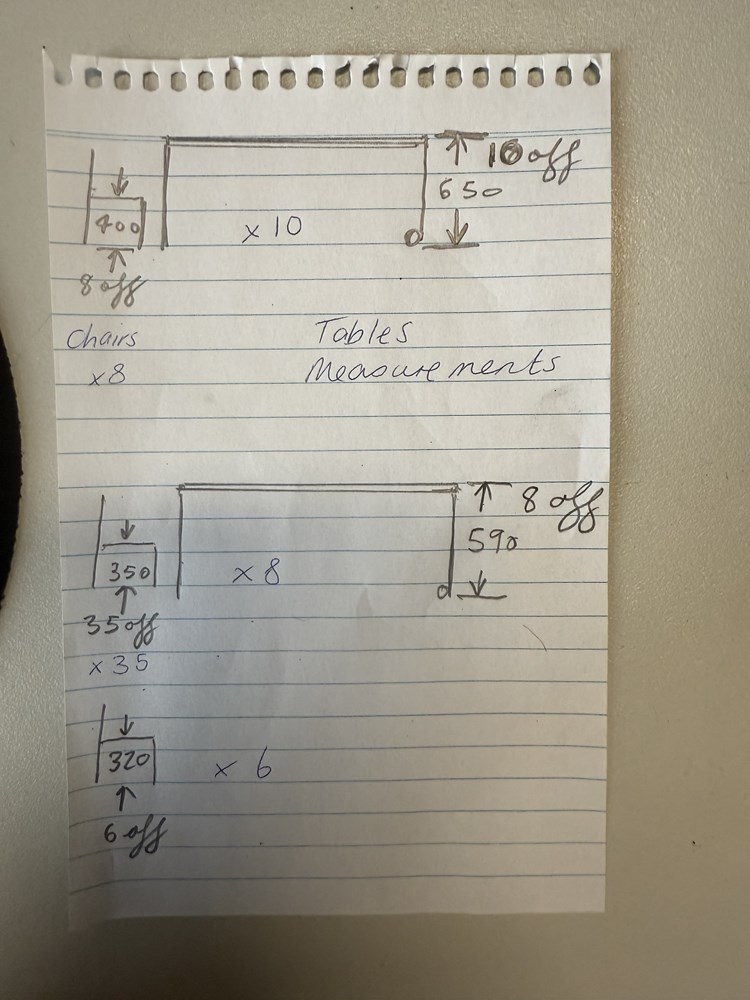 10 off
650
400
x 10
8 off
Chairs
Tables
x8
Measurements
8 off
590
350
x 8
35 off
x 35
320
x 6
6 off